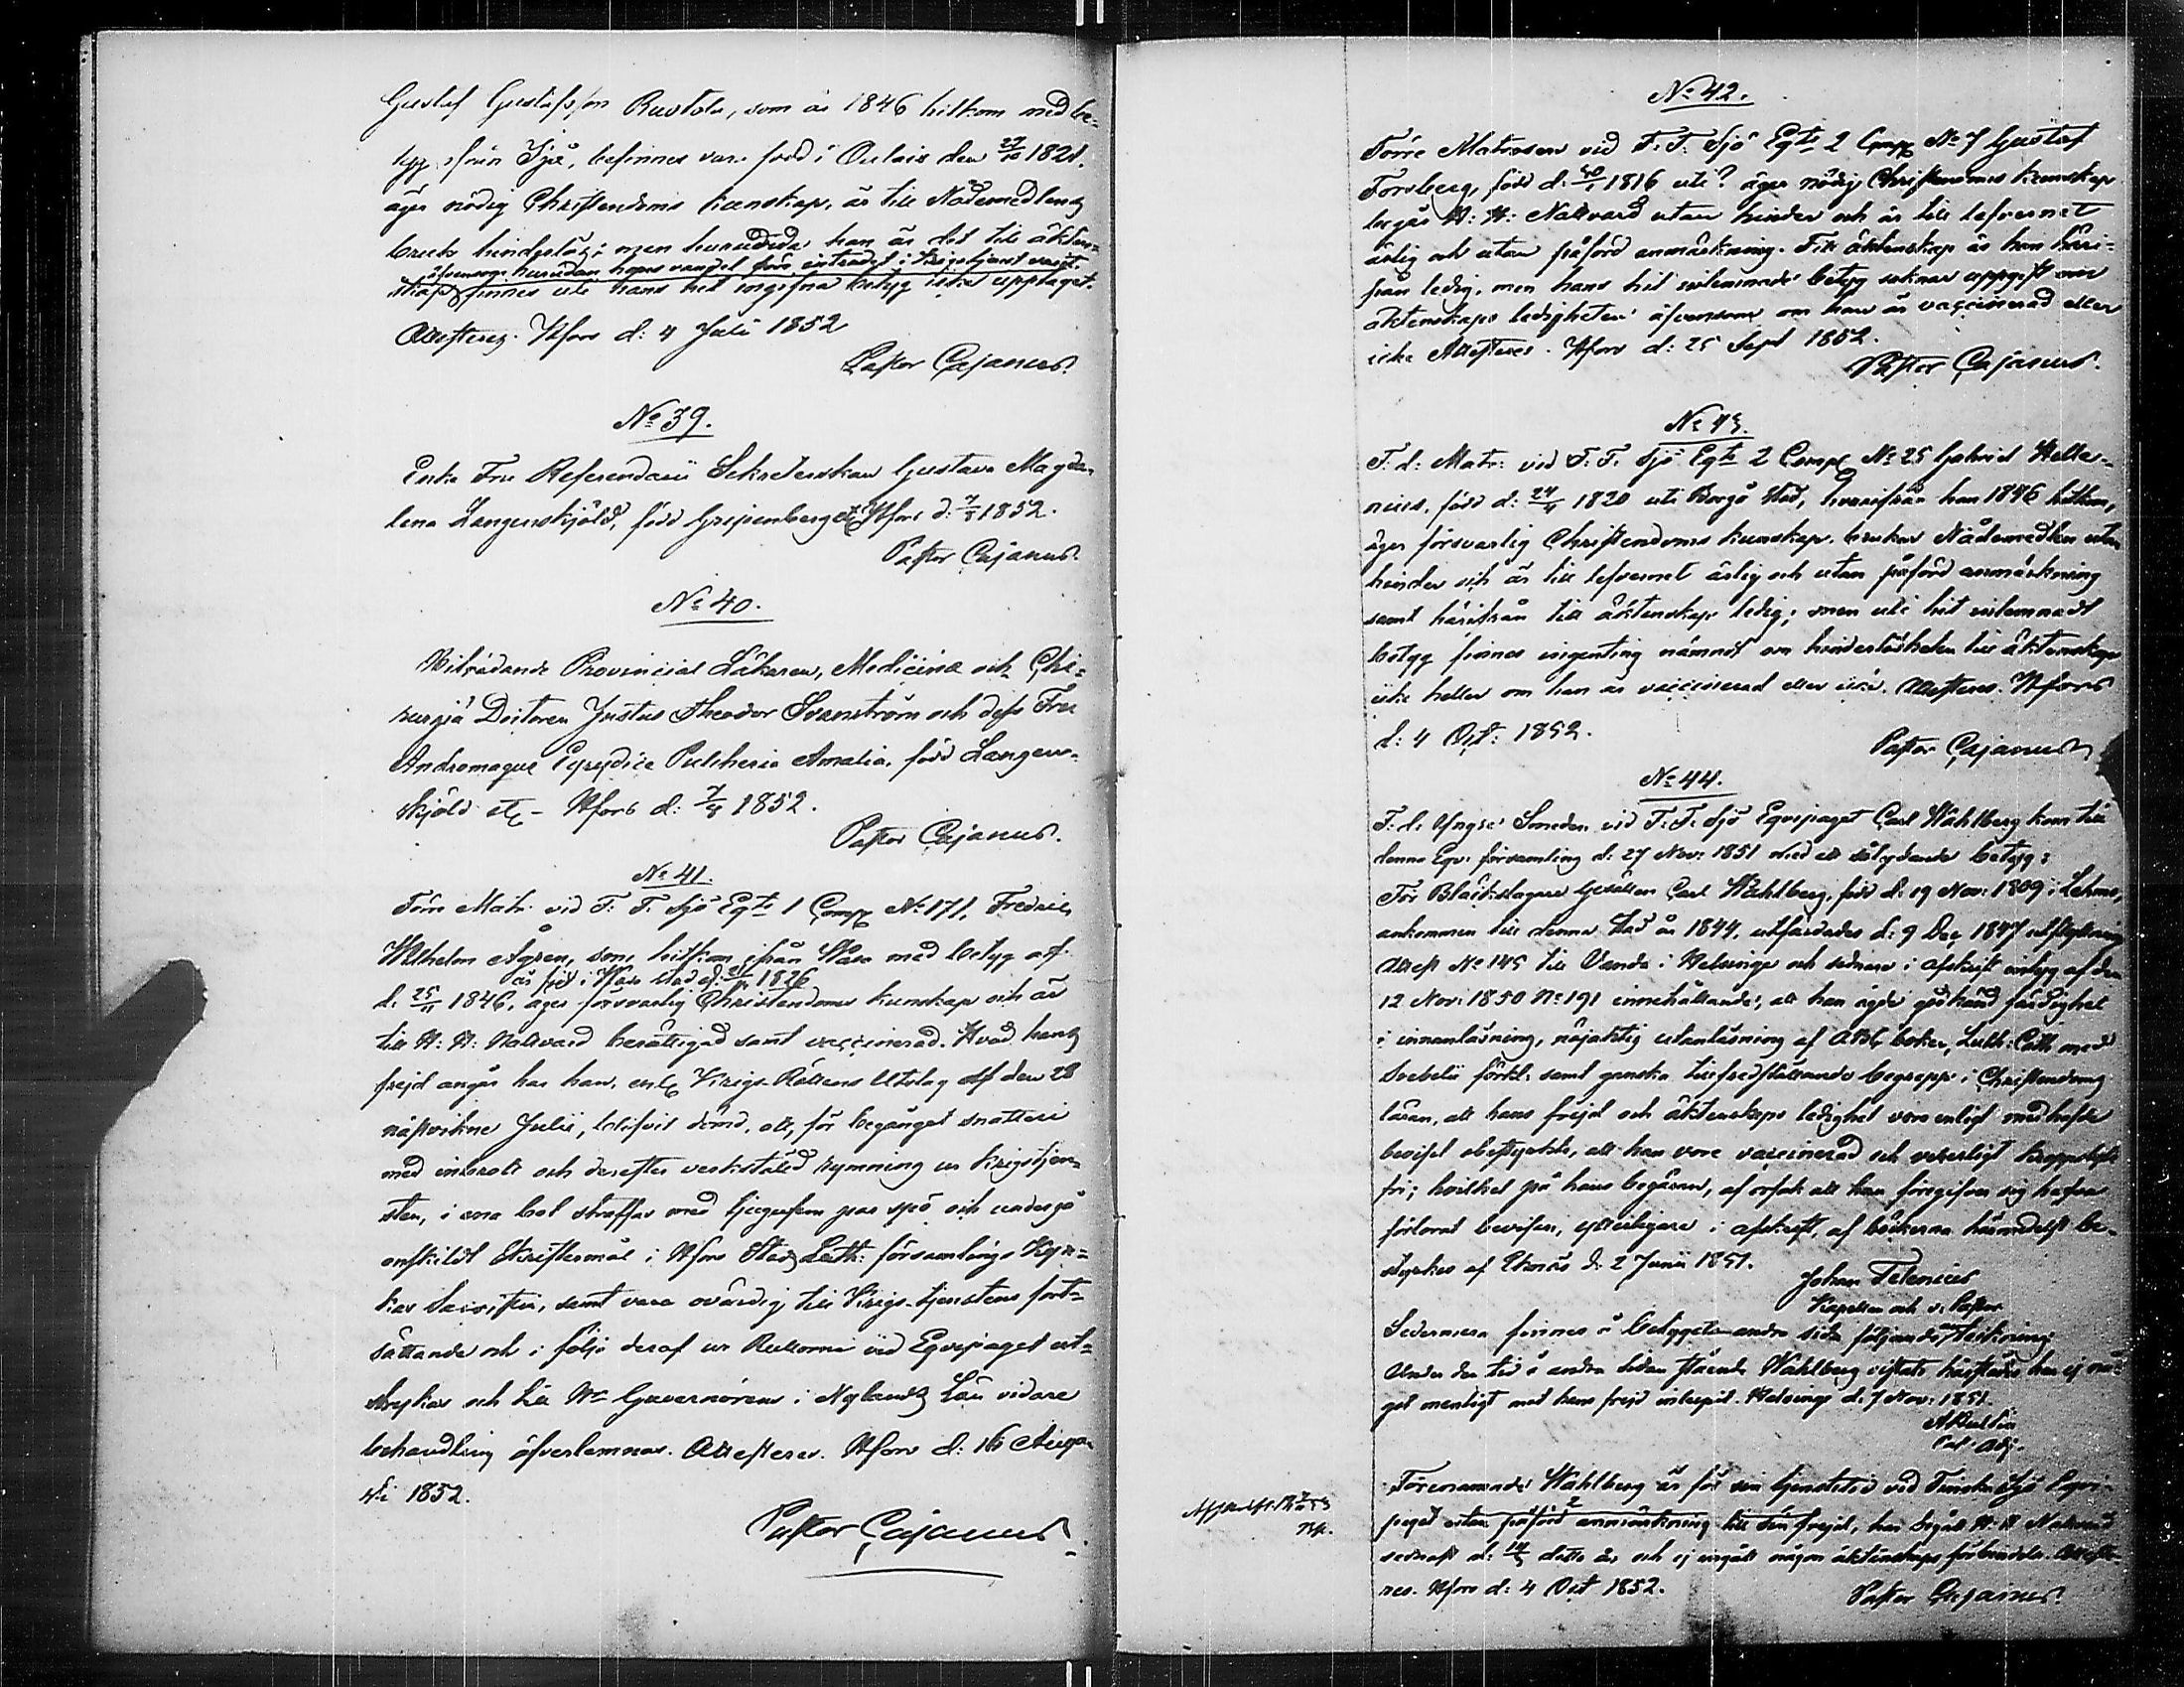 Gustaf Gustafsson Rautola, som år 1846 hitkom med be-
tyg ifrån Sjeå, befinnes vara född i Oulais den 27/10 1821.
äger nödig Christendoms kunskap, är till Nådemedlens
bruk hinderslös; men huruvida han är det till äkten-
äfvensom hurudan hans vandel före inträdet i krigstjenst varit
skap, finnes uti hans hit ingifna betyg icke upptaget.
Attesteras. Hfors d: 4 Juli 1852
Pastor Cajanus.
No 39.
Enke Fru Referendarii Sekreterskan Gustava Magda-
lena Langenskjöld, född Gripenberg etc Hfors d: 7/8 1852.
Pastor Cajanus.
No 40.
Biträdande Provincial Läkaren, Medicinæ och Chi-
rurgiæ Doctoren Justus Theodor Svanström och dess Fru
Andromaque Eyrydice Pulcheria Amalia, född Langen-
skjöld etc - Hfors d: 7/8 1852.
Pastor Cajanus.
No 41.
Förre Matr. vid F. F. Sjö Eqts 1 Comp No 171, Fredric
Wilhelm Ågren, som hitkom ifrån Wasa med betyg af
är född i Wasa stad d. 1826
d. 25/11 1846, äger försvarlig Christendoms kunskap och är
till H: H: Nattvard berättigad samt vaccinerad. Hvad hans
frejd angår har han, enl. Krigs-Rättens Utslag af den 28
nästvikne Julii, blifvit dömd, att, för begånget snatteri
med inbrott och derefter verkstäld rymning ur krigstjen-
sten, i ena bot straffas med tjugufem par spö och undergå
enskildt Skriftermål i Hfors Stads Luth: församlings Kyr-
kas Sacristia, samt vara ovärdig till Krigs-tjenstens fort-
sättande och i följe deraf ur Rullorna vid Eqvipaget ut-
strykas och till Hr Guvernörens i Nylands Län vidare
behandling öfverlemnas. Attesteras. Hfors d: 16 Augu-
sti 1852.
Pastor Cajanus
No 42.
Förre Matrosen vid F: F: Sjö Eqts 2 Comp No 7 Gustaf
Forsberg, född d: 1816 uti? äger nödig Christendoms kunskap
begår H: H: Nattvard utan hinder och är till lefvernet
ärlig och utan påförd anmärkning. Till äktenskap är han häri-
från ledig, men hans hit inlemnade betyg saknar uppgift om
äktenskaps ledigheten äfvensom om han är vaccinerad eller
icke. Attesteres. Hfors d: 25 Sept 1852.
Pastor Cajanus.
No 43.
F. d: Matr: vid F: F. Sjö Eqts 2 Comp No 25 Gabriel Helle-
nius, född d: 1820 uti Borgå stad, hvarifrån han 1846 hitkom,
äger försvarlig Christendoms kunskap, brukar Nådemedlen utan
hinder och är till lefvernet ärlig och utan påförd anmärkning
samt härifrån till äktenskap ledig; men uti hit inlemnadt
betyg finnes ingenting nämndt om hinderslösheten till äktenskap
icke heller om han är vaccinerad eller icke. Attesteres. Hfors
d: 4 Oct: 1852.
Pastor Cajanus
No 44.
F. d. Yngre Smeden vid F: F. Sjö Eqvipaget Carl Wahlberg kom till
denna Eqv: församling d: 27 Nov: 1851 med ett sålydande betyg:
För Bläckslagare Gesällen Carl Wahlberg, född d: 19 Nov: 1809 i Lehmo,
ankommen till denna stad år 1844, utfärdades d: 9 Dec 1847 utflyttnings
Attest No 145 till Vanda i Helsinge och sednare i afskrift intyg af den
12 Nov: 1850 No 191 innehållande, att han ägde godkänd färdighet
i innanläsning, nöjaktig utanläsning af ABC boken, Luth: Cath: med
Svebelii förkl: samt ganska tillfredsställande begrepp i Christendoms
läran, att hans frejd och äktenskaps ledighet vore enligt medhafde
beviset obestyrkta, att han vore vaccinerad och veterligt kroppslyte
fri; hvilket på hans begäran, af orsak att han föregifver sig hafva
förlorat bevisen, ytterligare i afskrift, af böckerna härmedelst be-
styrkes af Ekenäs d: 2 Junii 1851.
Johan Telenius
Kapellan och v. Pastor
Sedermera finnes å betygets andra sida följande anteckning
Under den tid å andra sidan stående Wahlberg vistats härstädes har ej nå-
got menligt mot hans frejd inlupit. Helsinge d: 7 Nov: 1851.
Past. Adj.
Förenämnde Wahlberg är för sin tjenstetid vid Finska Sjö Eqvi-
paget utan påförd anmärkning till sin frejd, har begått H. H. Nattvard
sednast d: detta år och ej ingått någon äktenskaps förbindelse. Atteste-
res. Hfors d: 4 Oct 1852.
Pastor Cajanus